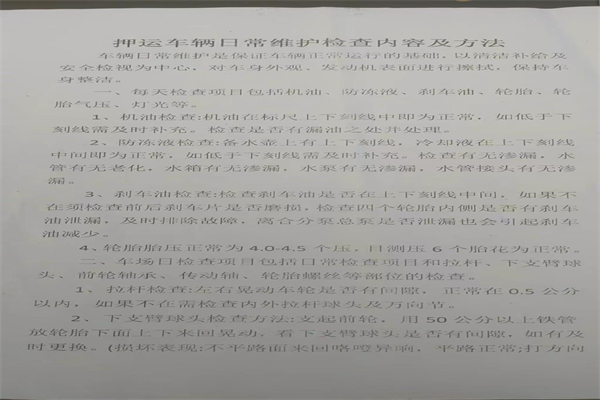 押运车辆日常维护检查内容及方法
车辆日常维护是保证车辆正常运行的基础，以清洁补给及
安全检视为中心，对车身外观、发动机表面进行擦拭，保持车
身整洁。
一、每天检查项目包括机油、防冻液、刹车油、轮胎、轮
胎气压、灯光等。
1、机油检查:机油在标尺上下刻线中即为正常，如低于下
刻线需及时补充。检查是否有漏油之处并处理。
2、防冻液检查:备水壶上有上下刻线，冷却液在上下刻线
中间即为正常，如低于下刻线需及时补充。检查有无渗漏，水
管有无老化，水箱有无渗漏，水泵有无渗漏，水管接头有无渗
漏。
3、刹车油检查:检查刹车油是否在上下刻线中间，如果不
在须检查前后刹车片是否磨损，检查四个轮胎内侧是否有刹车
油泄漏，及时排除故障，离合分泵总泵是否泄漏也会引起刹车
油减少。
4、轮胎胎压正常为4.0-4.5个压，目测压6个胎花为正常。
二、车场日检查项目包括日常检查项目和拉杆、下支臂球
头、前轮轴承、传动轴、轮胎螺丝等部位的检查。
1、拉杆检查:左右晃动车轮是否有间隙，正常在0.5公分
以内，如果不在需检查内外拉杆球头及万向节。
2、下支臂球头检查方法:支起前轮，用50公分以上铁管
放轮胎下面上下来回晃动，看下支臂球头是否有间隙，如有及
时更换。(损坏表现:不平路面来回咯噔异响，平路正常;打方向